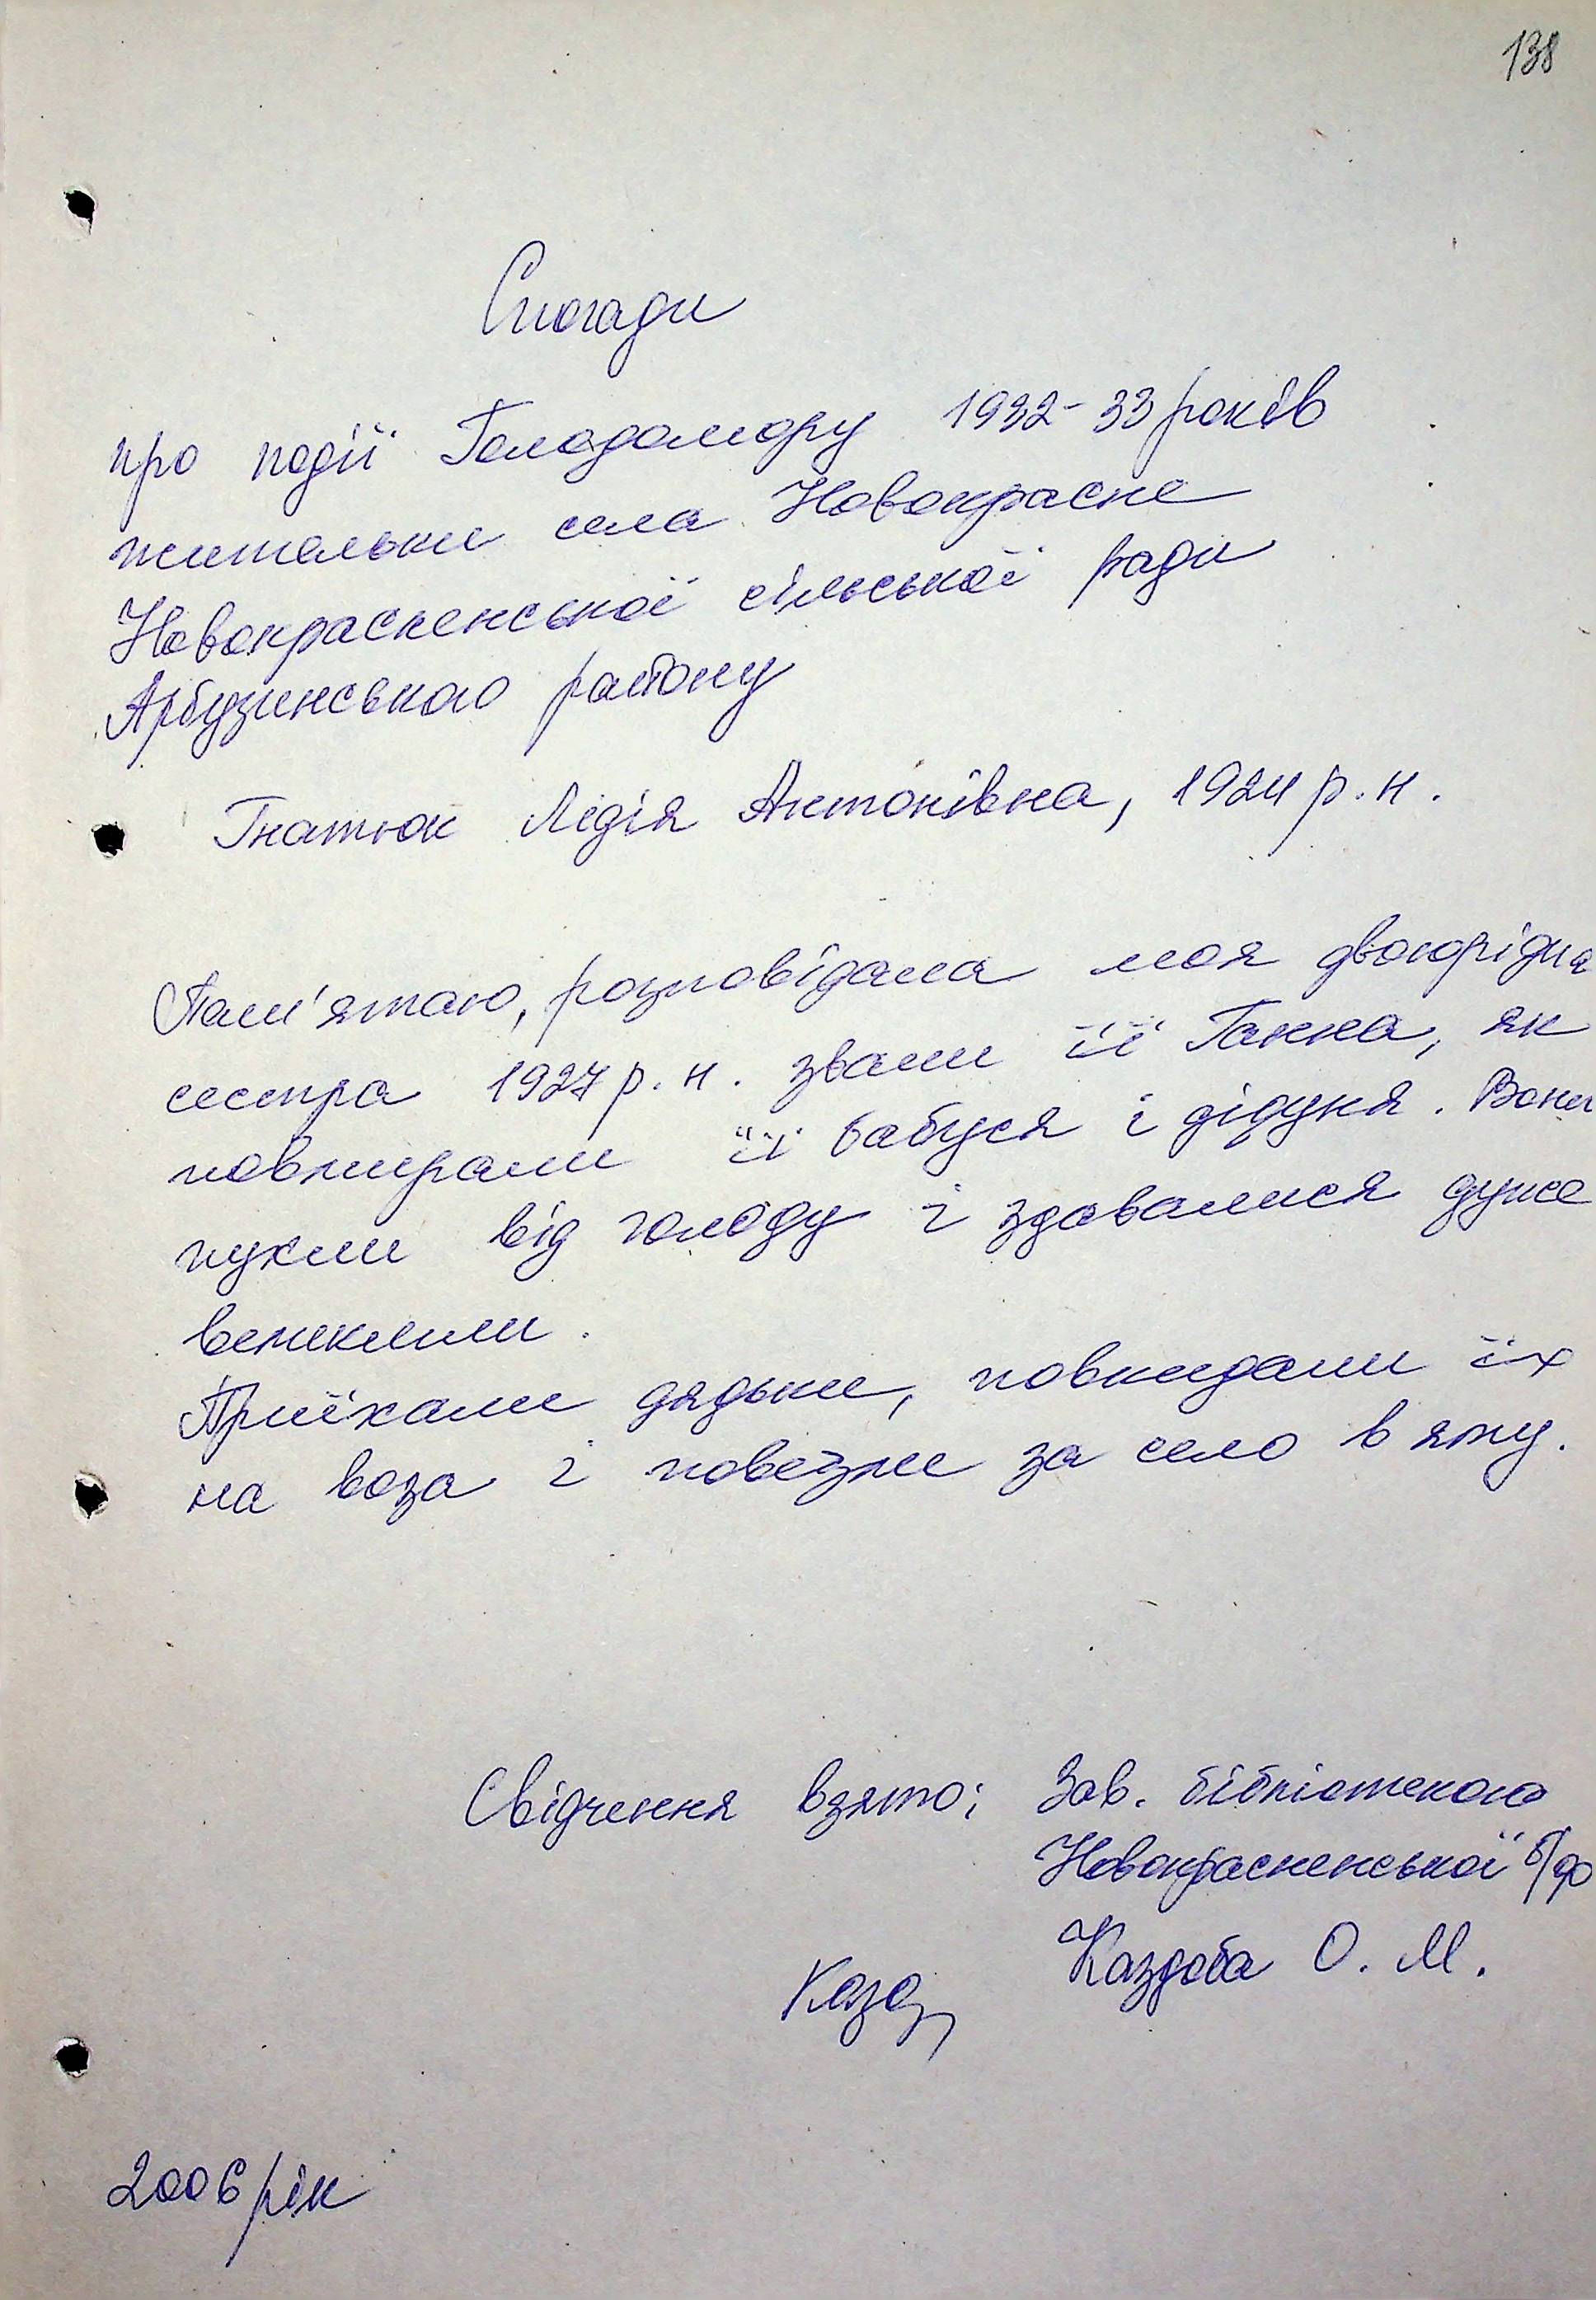 138
Спогади
про події Голодомору 1932-33 років
жительки села Новокрасне
Новокрасненської сільської ради
Арбузинського району
Гнатюк Лідія Антонівна, 1924 р. н.
Пам'ятаю, розповідала моя двоюрідна
сестра 1927 р. н. звали її Ганна, як
повмирали її бабуся і дідуня. Вони
пухли від голоду і здавалися дуже
великими.
Приїхали дядьки, повкидали їх
на воза і повезли за село в яму.
Свідчення взято: Зав. бібліотекою
Новокрасненської б/ф
Каздоба О. М.
2006 рік